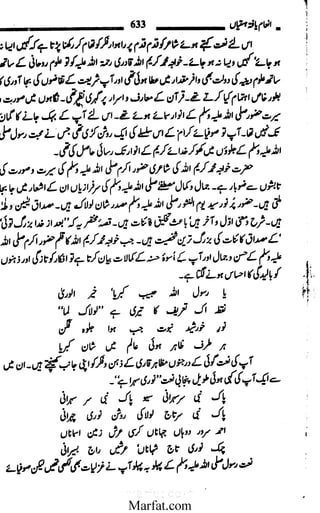 انعام یافتہ ہستیاں 633
اس لئے نعت کہتے ہوئے شاعر کو قدم قدم پر راہوار فکر کو تھام کر رکھنا پڑتا ہے کہ کہیں ایسا نہ
ہو جائے کہیں ویسا نہ ہو جائے۔ خواجہ محمد کریم اللہ قادری رحمۃ اللہ علیہ کو تو علوم روحانی کے ساتھ
ساتھ علوم دینیہ کی دولت بھی وافر مقدار میں عطا ہوئی تھی اور آپ شریعت کے تقاضوں کی بجا آوری کا
بطور خاص اہتمام کیا کرتے تھے۔ قرآن کے معارف و اسرار پر گہری نظر تھی۔ نگاہوں میں صورت و
سیرت حضور صلی اللہ علیہ وسلم کے انوار سمائے ہوئے تھے۔ اس لئے آپ کے بہک جانے کا گمان
تک نہیں تھا۔ آپ تو صوفیائے کرام کے اس سلسلے کی ایک روشن کڑی تھی جس نے محبت رسول صلی
اللہ علیہ وسلم کے جلوؤں میں کھو کر خدائے کریم کے انوار تک رسائی حاصل کی تھی۔
حضرت خواجہ محمد کریم اللہ کی شاعری حضور اکرم صلی اللہ علیہ وسلم کی سیرت و صورت کی
تابشوں سے ضوبار ہے۔ جمال و کمال مصطفےٰ صلی اللہ علیہ وسلم کی سرفرازیاں ان کے اشعار میں جا بجا
ملتی ہیں۔ حضور پر نور سید یوم النشور صلی اللہ علیہ وسلم مصدر شان لولاک ہیں۔ مصداق یٰسین و طٰہٰ
ہیں۔ اول و آخر ہیں باعث تخلیق کائنات ہیں۔ قصہ مختصر یہ کہ "بعد از خدا بزرگ توئی"
کے مصداق کائنات کی بزرگ ترین شخصیت ہیں۔ جب خواجہ محمد کریم اللہ کا قلم حضور اکرم صلی اللہ
علیہ وسلم کے حسن و جمال اور آپ کے اسوۂ حسنہ کے کمالات بیان کرتا ہے تو افکار کو تازگی اور ذہنوں
کو بالیدگی کا احساس ہونے لگتا ہے۔
یا رسول اللہ حبیب کبریا خیر الوریٰ
نقطہ اک تعریف کا تیری ہے "لولاک لما"
نور خورشید نبوت جب ہوا جلوہ فگن
ہر طرف ظاہر ہوئی عالم میں شان کبریا
آپ کی نعت گوئی کے درجنوں مظاہر قاری کے ذہن و فکر کو اپنی جانب کھینچتے ہیں۔ ان میں
سے ایک آپ کی کہی ہوئی طویل پنجابی نعت "نوری سہرا ہے"۔
پاک نبی سر سہرانی سیو پاک نبی سر سہرانی
پاک نبی سرتاج لولاکی روشن نوری چہرانی
احمد سرور دوہاں جہاناں کرسی عرش زمین اسماناں
چمک نوری تاج شہاناں عرشیں راج بسیرانی
نعت رسول صلی اللہ علیہ وسلم کے پہلو بہ پہلو آپ نے غزلیات بھی لکھی تھیں لیکن صوفیائے
Marfat.com